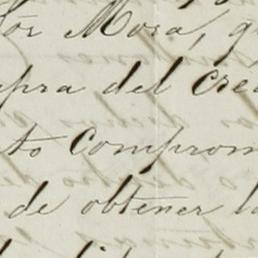 tor Mora, q
pra del Cré
to comprom
de obtener l